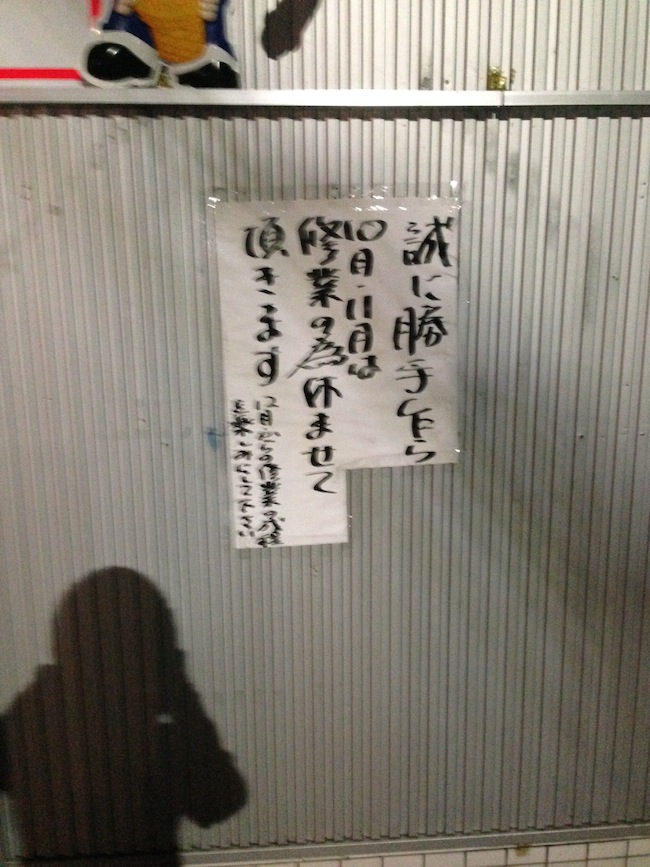 誠に勝手乍ら
10月・11月は
修業の為休ませて
頂きます
12月からの修業の
を楽しみにして下さい